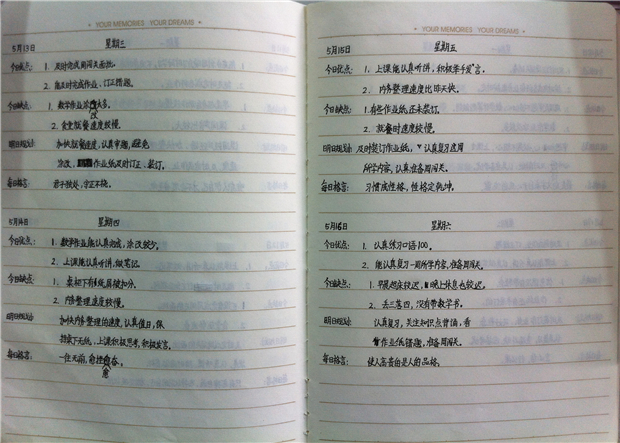 YOUR MEMORIES YOUR DREAMS
5月13日 星期三
今日优点: 1. 及时完成周闯关面批。
2. 能及时完成作业,订正错题。
今日缺点: 1. 数学作业涂改太多。
2. 食堂就餐速度较慢。
明日规划: 加快就餐速度,认真审题,避免
涂改,作业纸及时订正、装订。
每日格言: 君子独处,守正不挠。
5月14日 星期四
今日优点: 1. 数学作业能认真完成,涂改较少。
2. 上课能认真听讲,做笔记。
今日缺点: 1. 桌柜下有纸屑被扣分。
2. 内务整理速度较慢。
明日规划: 加快内务整理的速度,认真值日,保
持桌下无纸,上课积极思考,积极发言。
每日格言: 一往无前,愈挫愈奋。
YOUR MEMORIES YOUR DREAMS
5月15日 星期五
今日优点: 1. 上课能认真听讲,积极举手发言。
2. 内务整理速度比昨天快。
今日缺点: 1. 有些作业纸还未装订。
2. 就餐时速度较慢。
明日规划: 及时装订作业纸,认真复习这周
所学内容,认真准备周闯关。
每日格言: 习惯成性格,性格定乾坤。
5月16日 星期六
今日优点: 1. 认真练习口语100。
2. 能认真复习一周所学内容,准备周闯关。
今日缺点: 1. 早晨起床较迟,晚上休息也较迟。
2. 丢三落四,没有带数学书。
明日规划: 认真复习,关注知识点背诵,看
作业纸错题,准备周闯关。
每日格言: 使人高贵的是人的品格。